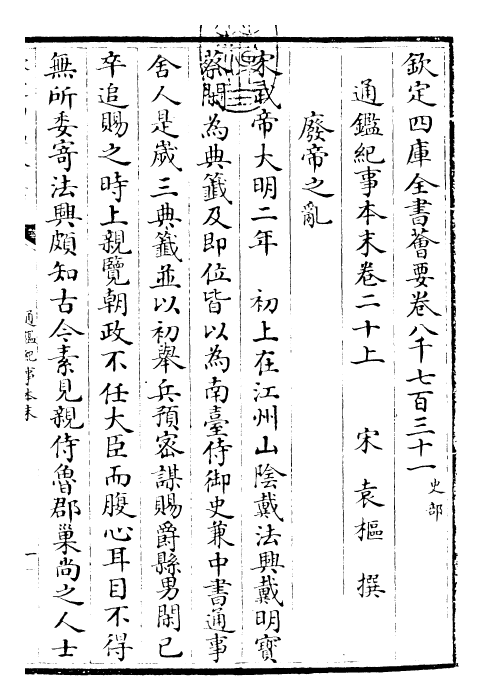 欽定四庫全書薈要卷八千七百三十一 史部
通鑑紀事本末卷二十上 宋 袁樞 撰
廢帝之亂
宋武帝大明二年 初上在江州山陰戴法興戴明寶
蔡閑為典籤及即位皆以為南臺侍御史兼中書通事
舍人是歲三典籤並以初舉兵預密謀賜爵縣男閑已
卒追賜之時上親覽朝政不任大臣而腹心耳目不得
無所委寄法興頗知古今素見親侍魯郡巢尚之人士
通鑑紀事本末
一